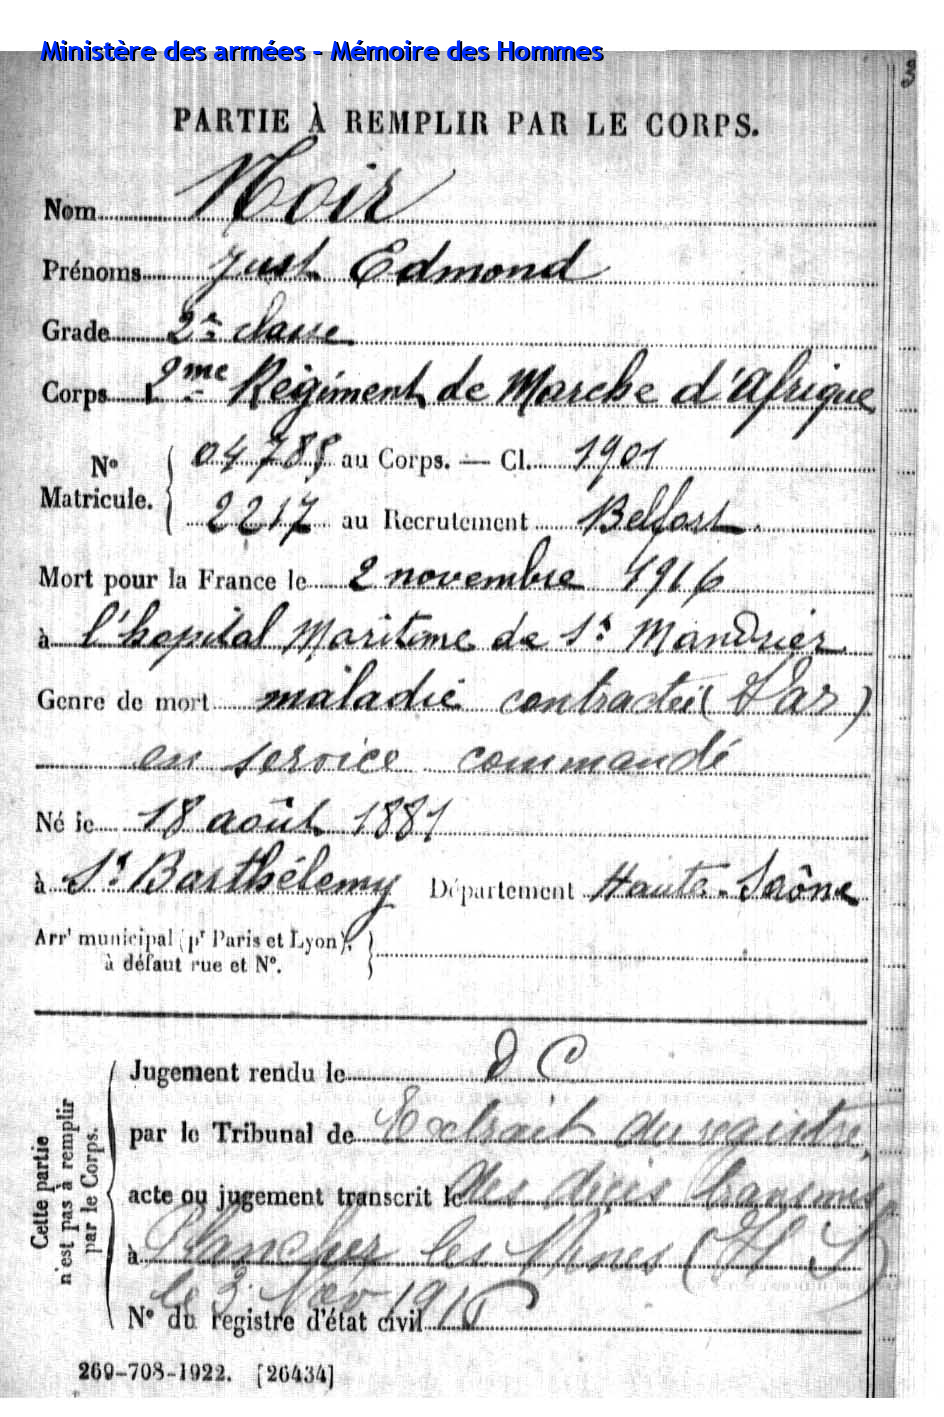 Ministère des armées - Mémoire des Hommes
3
PARTIE À REMPLIR PAR LE CORPS.
Nom Noir
Prénoms Just Edmond
Grade 2e classe
Corps 2me Régiment de Marche d'Afrique
No Matricule. 04785 au Corps. — Cl. 1901
2217 au Recrutement Belfort.
Mort pour la France le 2 novembre 1916
à l'hopital Maritime de St Mandrier
Genre de mort maladie contractée (Var)
en service commandé
Né le 18 août 1881
à St Barthélemy Département Haute-Saône
Arrt municipal (pr Paris et Lyon),
à défaut rue et No.
Cette partie n'est pas à remplir par le Corps.
Jugement rendu le D C
par le Tribunal de Extrait du registre
acte ou jugement transcrit le des décès transmis
à Plancher les Mines (H S)
le 3 Nov 1916
No du registre d'état civil
269-708-1922. [26434]